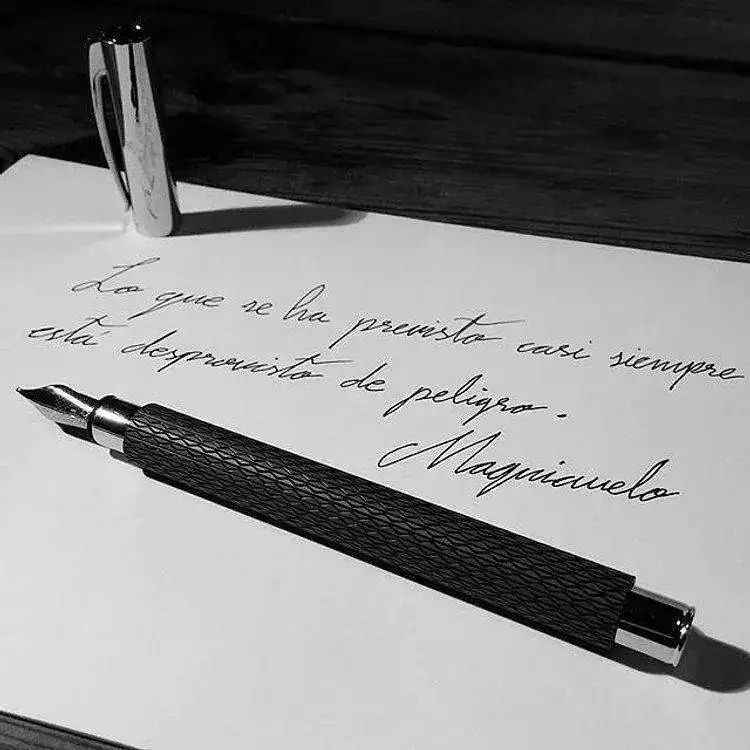 Lo que se ha previsto casi siempre
está desprovisto de peligro.
Maquiavelo